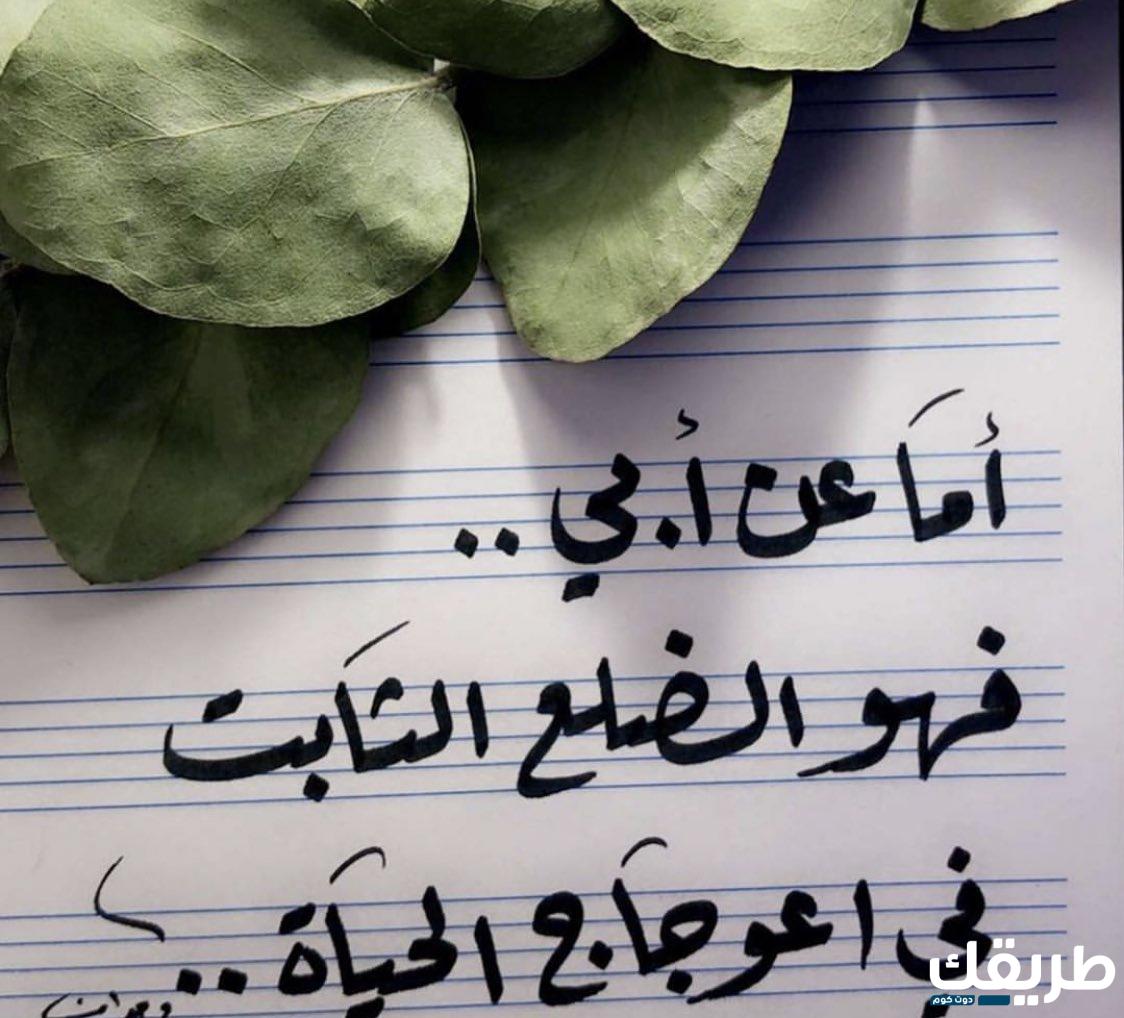 أما عن أبي..
فهو الضلع الثابت
في اعوجاج الحياة..
طريقك
دوت كوم